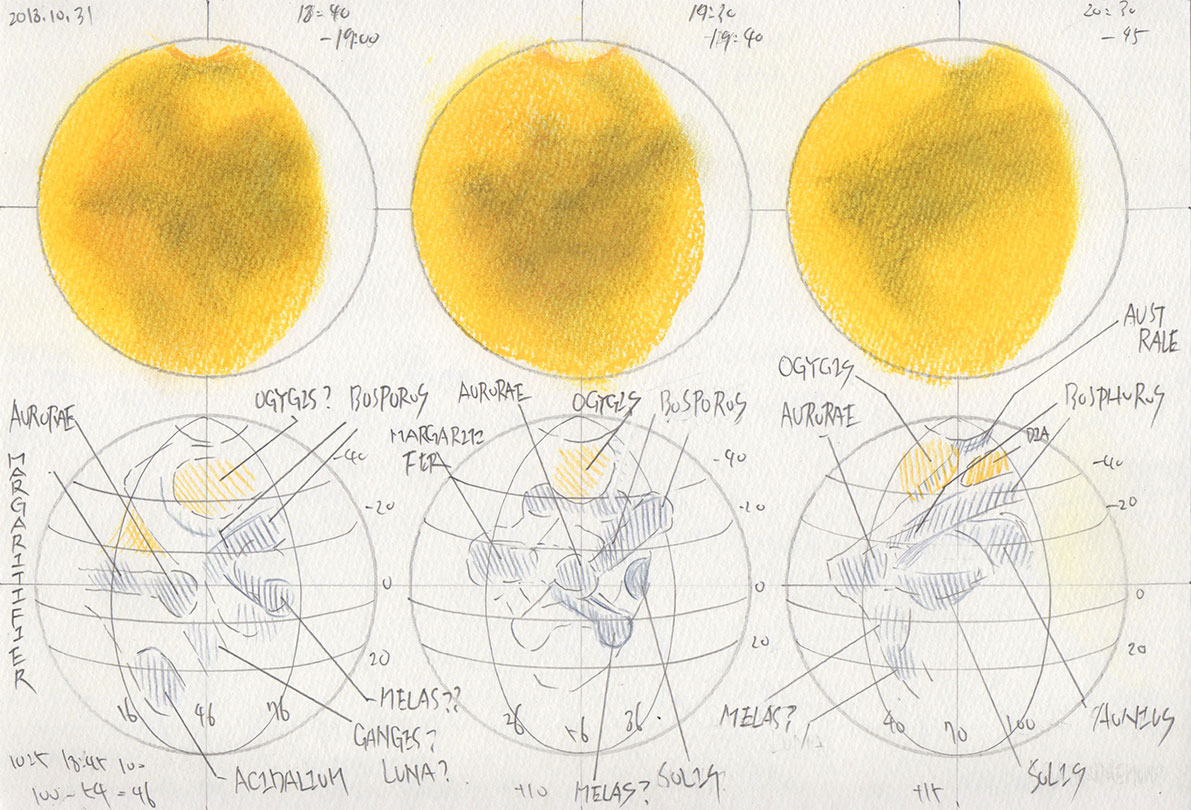 2018.10.31
18:40
-19:00
19:30
-19:40
20:30
-45
AURORAE
OGYGIS?
BOSPORUS
AURORAE
OGYGIS
BOSPORUS
OGYGIS
AURORAE
AUST
RALE
BOSPHORUS
MARGARITI
FER
DIA
MARGARITIFIER
-40
-20
0
20
-40
-20
0
20
-40
-20
0
20
16
46
76
26
56
86
40
70
100
MELAS??
GANGES?
LUNA?
ACIDALIUM
MELAS?
SOLIS
MELAS?
THUNIUS
SOLIS
100-54=46
+10
+15